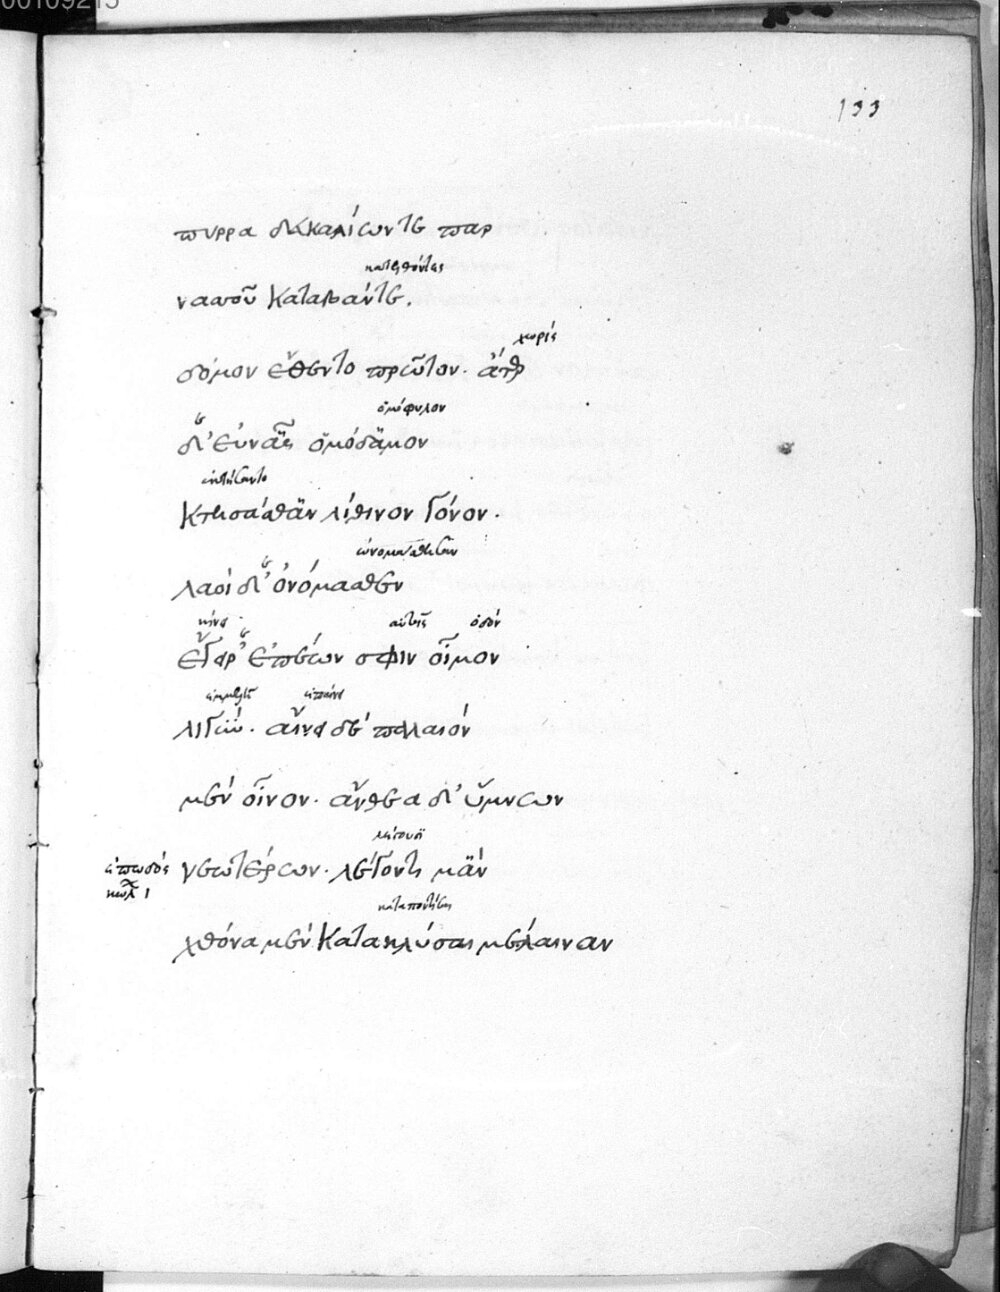 00109215
133
πυρρα δευκαλίων τε παρ
κατελθόντες
νασοῦ καταβάντε.
χωρίς
δόμον ἔθεντο πρῶτον. ἄτερ
ὁμόφυλον
δ' εὐνᾶς ὁμόδαμον
ἐκτήσαντο
κτισάσθαν λίθινον γόνον.
ὠνομάσθησαν
λαοὶ δ' ὀνόμασθεν
κίνει
αὐτοῖς ὁδόν
ἔγειρ' ἐπέων σφιν οἶμον
ἐπαίνει
λιγύν. αἴνει δὲ παλαιόν
μὲν οἶνον. ἄνθεα δ' ὕμνων
λέγουσι
ἐπωδός νεωτέρων. λέγοντι μὰν
κώλ
χθόνα μὲν κατακλύσαι μέλαιναν